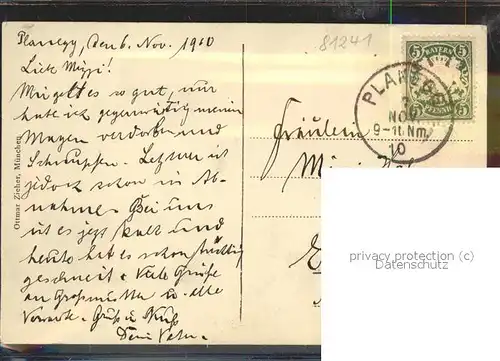 Planegg, den 6. Nov. 1910
Liebe Mizzi!
Mir geht es so gut, nur
habe ich gegenwärtig meinen
Magen verdorben und
Schnupfen. Letzterer ist
jedoch schon im Ab-
nehmen. Bei uns
ist es jetzt kalt und
heute hat es schon tüchtig
geschneit. Viele Grüße
an Großmutter u. alle
Verwandt. Gruß u. Kuß
Dein Vater.
Ottmar Zieher, München
81241
5 BAYERN 5
PLANEGG
7
NOV
9-10 Nm.
10
Fräulein
privacy protection (c)
Datenschutz